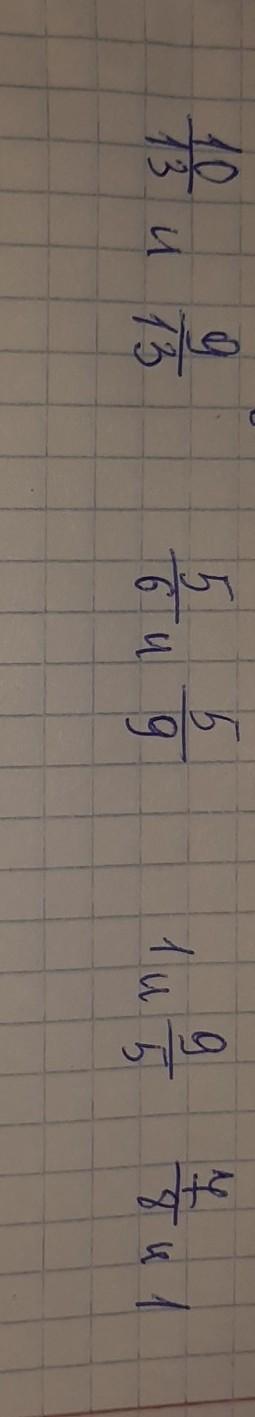 10/13 и 9/13 5/6 и 5/9 1 и 9/5 7/8 и 1